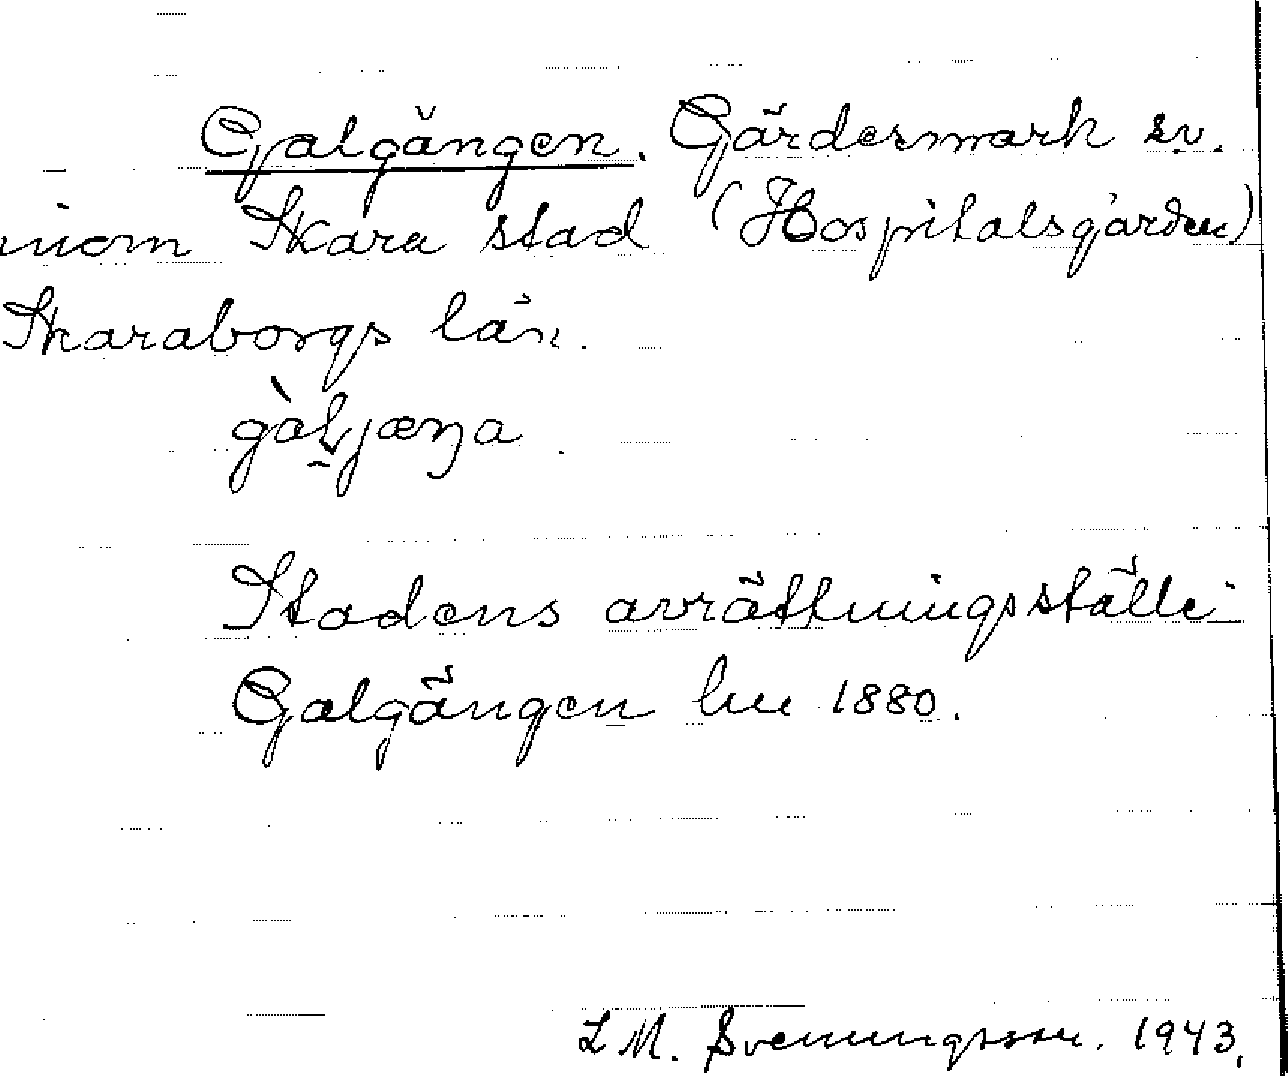 Galgängen. Gärdesmark s.v.
inom Skara stad (Hospitalsgården)
Skaraborgs län.
gàḷjæŋa.
Stadens avrättningsställe
Galgängen lm 1880.
L M. Svenungsson. 1943.